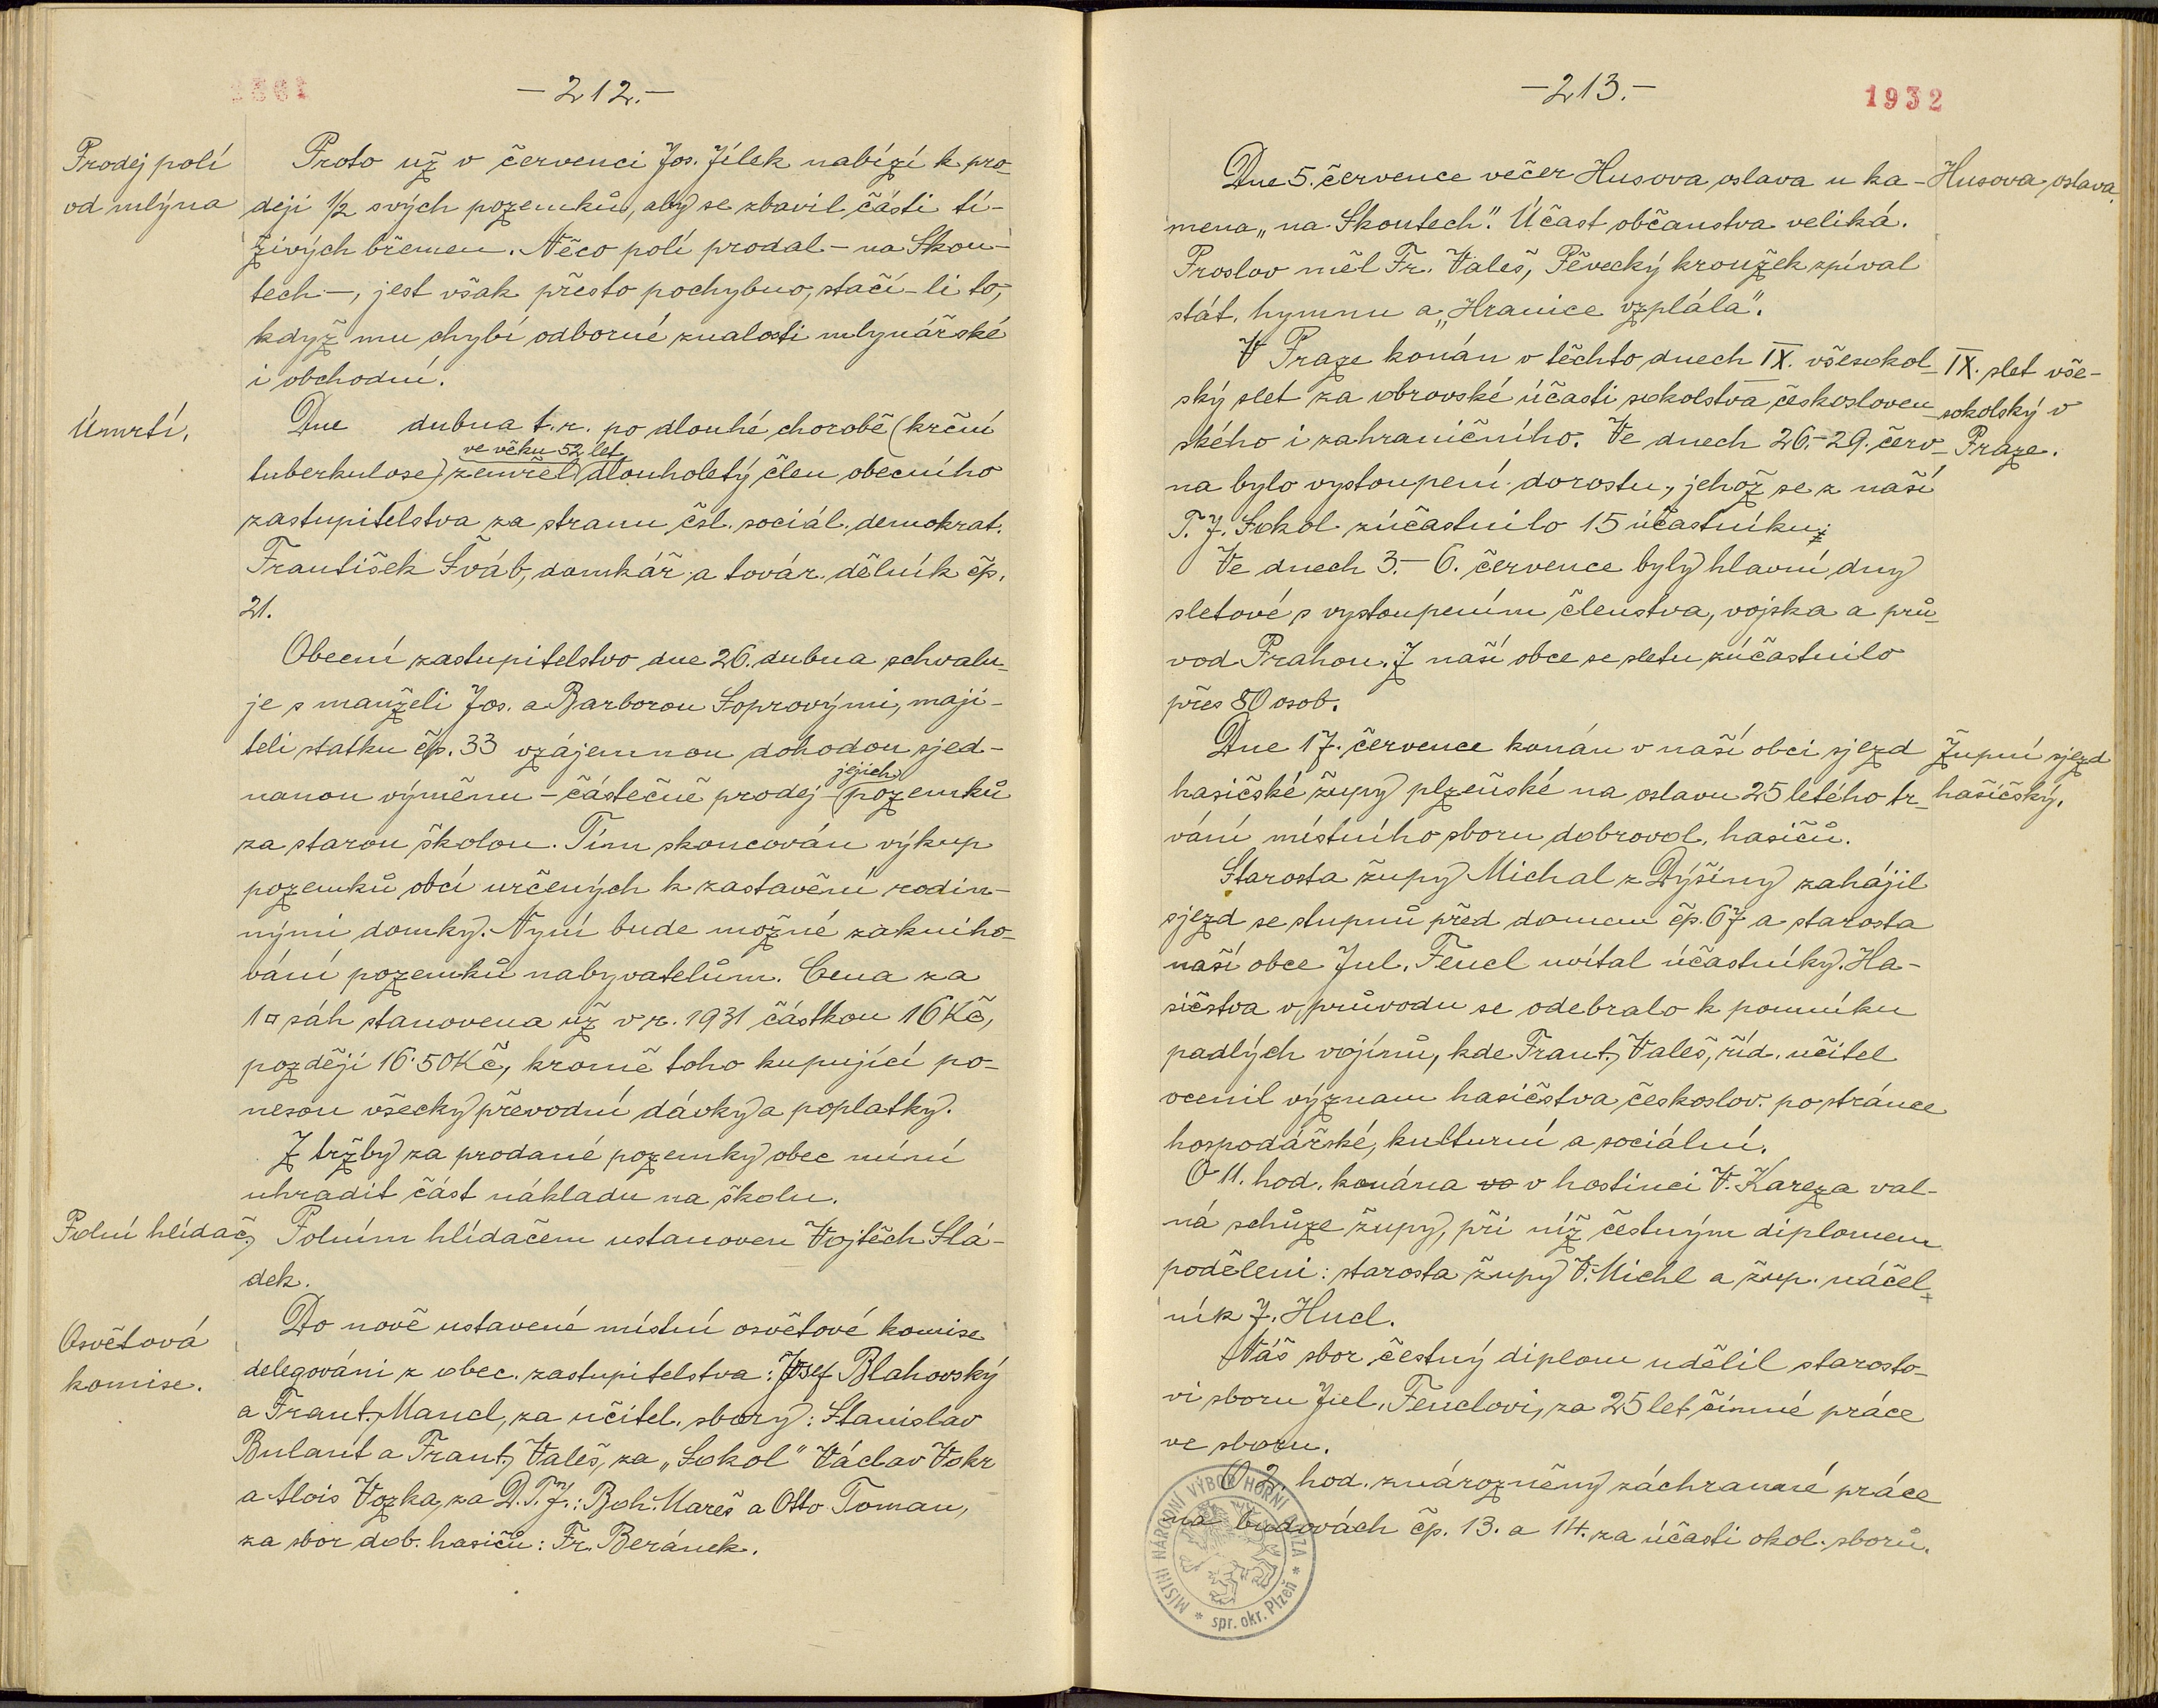 -212.-
Prodej polí
od mlýna
Proto už v červenci Jos. Jílek nabízí k pro-
deji ½ svých pozemků, aby se zbavil části tí-
živých břemen. Něco polí prodal – na Skou-
tech –, jest však přesto pochybno, stačí-li to,
když mu chybí odborné znalosti mlynářské
i obchodní.
Úmrtí.
Dne dubna t.r. po dlouhé chorobě (krční
ve věku 52 let
tuberkulose) zemřel dlouholetý člen obecního
zastupitelstva za stranu čsl. sociál. demokrat.
František Šváb, domkář a továr. dělník čp.
21.
Obecní zastupitelstvo dne 26. dubna schvalu-
je s manželi Jos. a Barborou Soprovými, maji-
teli statku čp. 33 vzájemnou dohodou sjed-
jejich
nanou výměnu – částečně prodej – pozemků
za starou školou. Tím skoncován výkup
pozemků obcí určených k zastavění rodin-
nými domky. Nyní bude možné zakniho-
vání pozemků nabyvatelům. Cena za
1□ sáh stanovena už v r. 1931 částkou 16 Kč,
později 16·50 Kč, kromě toho kupující po-
nesou všecky převodní dávky a poplatky.
Z tržby za prodané pozemky obec míní
uhradit část nákladu na školu.
Polní hlídač.
Polním hlídačem ustanoven Vojtěch Slá-
dek.
Osvětová
komise.
Do nově ustavené místní osvětové komise
delegováni z obec. zastupitelstva: Josef Blahovský
a Frant. Mancl, za učitel. sbory: Stanislav
Bulant a Frant. Valeš, za „Sokol“ Václav Vokr
a Alois Vozka, za D.T.J.: Boh. Mareš a Otto Toman,
za sbor dob. hasičů: Fr. Beránek.
-213.-
1932
Dne 5. července večer Husova oslava u ka-
Husova oslava.
mena „na Skoutech“. Účast občanstva veliká.
Proslov měl Fr. Valeš, Pěvecký kroužek zpíval
stát. hymnu a „Hranice vzplála“.
V Praze konán v těchto dnech IX. všesokol-
IX. slet vše-
sokolský v
Praze.
ský slet za obrovské účasti sokolstva českosloven-
ského i zahraničního. Ve dnech 26.-29. červ-
na bylo vystoupení dorostu, jehož se z naší
T.J. Sokol zúčastnilo 15 účastníku;
Ve dnech 3.-6. července byly hlavní dny
sletové s vystoupením členstva, vojska a prů-
vod Prahou. Z naší obce se sletu zúčastnilo
přes 80 osob.
Dne 17. července konán v naší obci sjezd
Župní sjezd
hasičský.
hasičské župy plzeňské na oslavu 25 letého tr-
vání místního sboru dobrovol. hasičů.
Starosta župy Michal z Dýšiny zahájil
sjezd se stupnů před domem čp. 67 a starosta
naší obce Jul. Fencl uvítal účastníky. Ha-
sičstva v průvodu se odebralo k pomníku
padlých vojínů, kde Frant. Valeš, říd. učitel
ocenil význam hasičstva českoslov. po stránce
hospodářské, kulturní a sociální.
O 11. hod. konána vo v hostinci V. Kareza val-
ná schůze župy, při níž čestným diplomem
poděleni: starosta župy V. Michl a žup. náčel-
ník J. Hucl.
Náš sbor čestný diplom udělil starosto-
vi sboru Jul. Fenclovi, za 25 let činné práce
ve sboru.
O 2. hod. znározněny záchranné práce
na budovách čp. 13. a 14. za účasti okol. sborů.
MÍSTNÍ NÁRODNÍ VÝBOR HORNÍ BŘÍZA
* spr. okr. Plzeň *